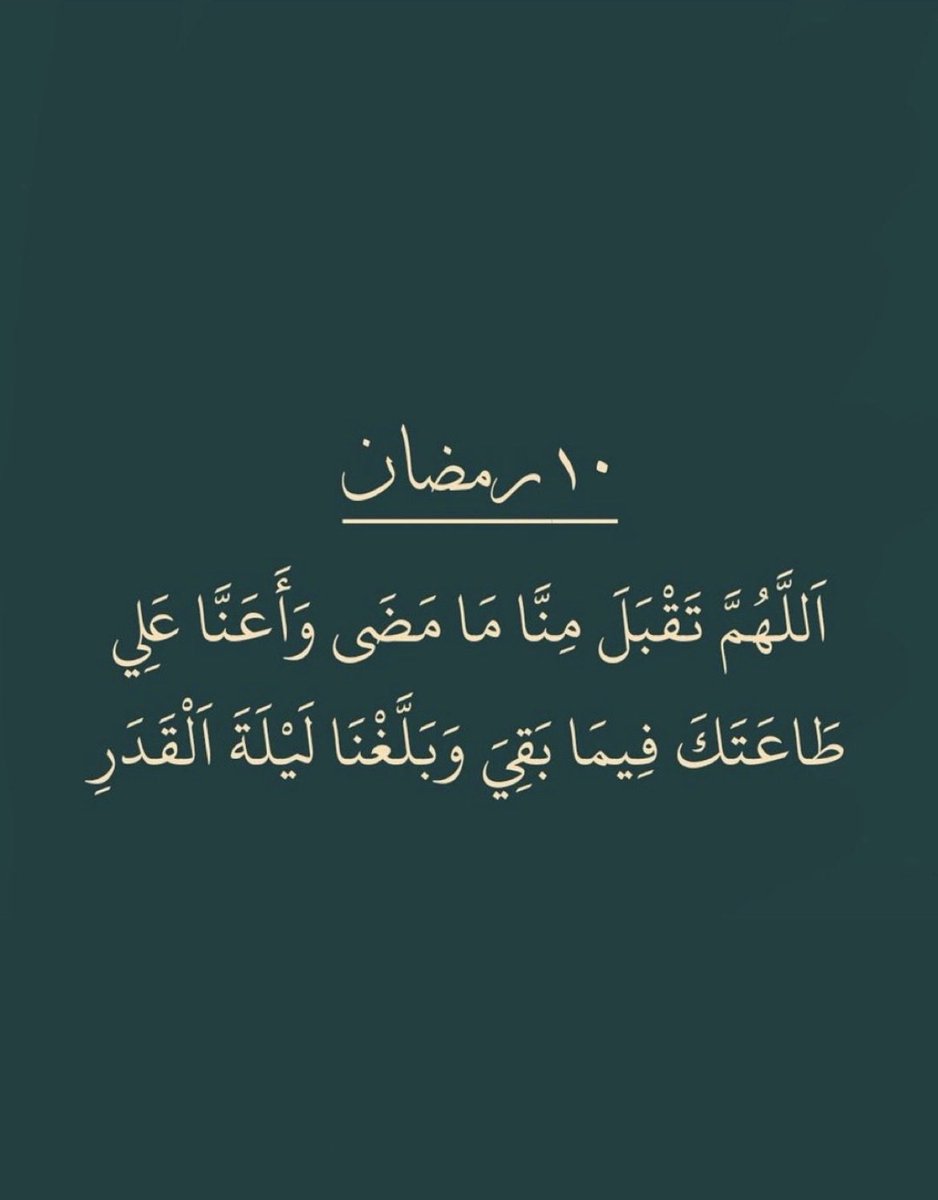 ١٠ رمضان
اَللَّهُمَّ تَقْبَلَ مِنَّا مَا مَضَى وَأَعَنَّا عَلِي
طَاعَتَكَ فِيمَا بَقِيَ وَبَلَّغْنَا لَيْلَةَ اَلْقَدَرِ